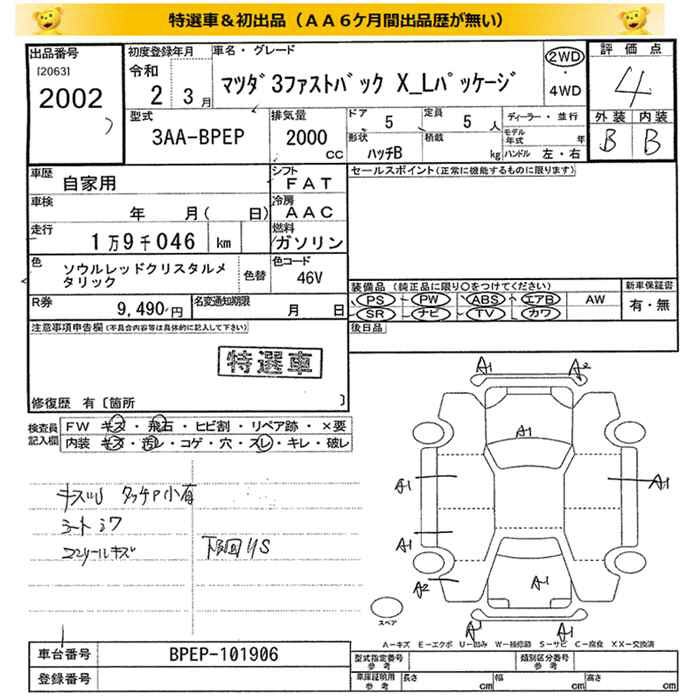 特選車＆初出品（ＡＡ６ケ月間出品歴が無い）
出品番号 初度登録年月 車名・グレード 評価点
[2063] 令和 マツダ３ファストバック X_Lパッケージ 2WD 4
2002 2 3月 4WD
型式 排気量 ドア 5 定員 5人 ディーラー・並行 外装 内装
3AA-BPEP 2000 CC 形状 ハッチB 積載 kg モデル年式 年 ハンドル 左・右 B B
車歴 自家用 シフト FAT セールスポイント(正常に機能するものに限ります)
車検 年 月( 日) 冷房 AAC
走行 1万9千046 km 燃料 ガソリン
色 ソウルレッドクリスタルメタリック 色替 色コード 46V
装備品 (純正品に限り○をつけてください) 新車保証書
R券 9,490円 名変通知期限 月 日 PS PW ABS エアB AW 有・無
SR ナビ TV カワ
注意事項申告欄(不具合内容等は具体的に記入して下さい) 後日品
特選車
修復歴 有〔箇所 〕
検査員記入欄 FW キズ・飛石・ヒビ割・リペア跡・×要
内装 キズ・汚レ・コゲ・穴・スレ・キレ・破レ
キズU タッチP小有
シート シワ
コンソールキズ 下回りS
A1 A2
A1
A1 A1
A1
A2 A1
スペア
A1 A1
A－キズ E－エクボ U－凹み W－補修跡 S－サビ C－腐食 XX－交換済
車台番号 BPEP-101906 型式指定番号 参考 類別区分番号 参考
登録番号 車庫証明用 参考 長さ cm 幅 cm 高さ cm